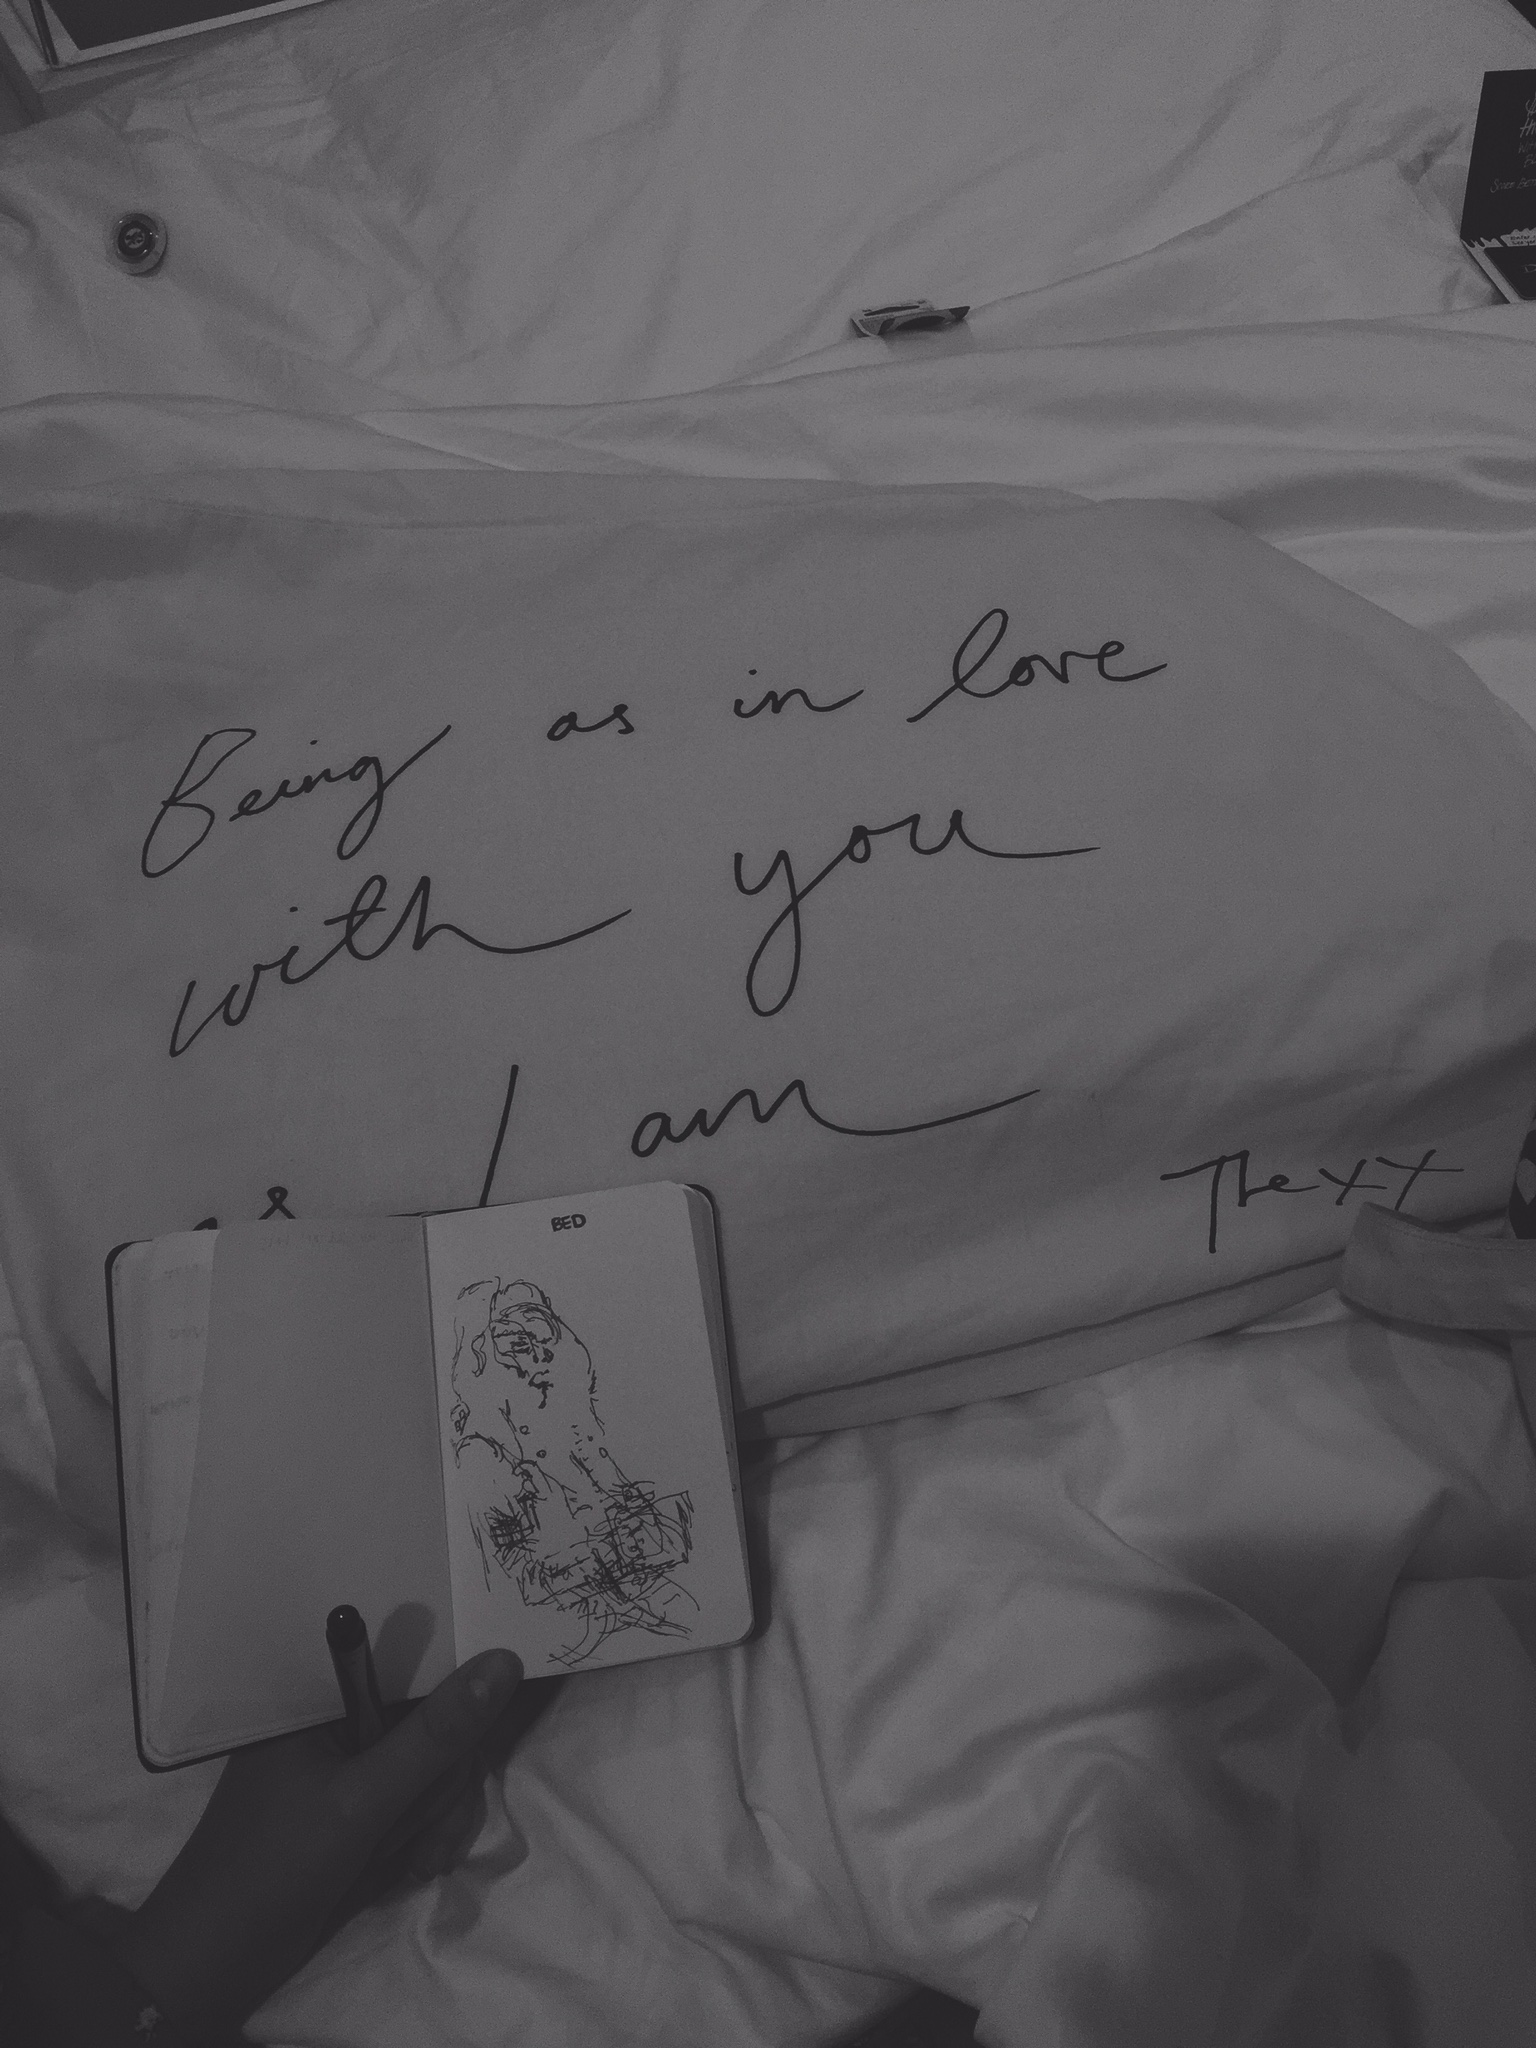 Being as in love
with you
as I am
The XX
BED